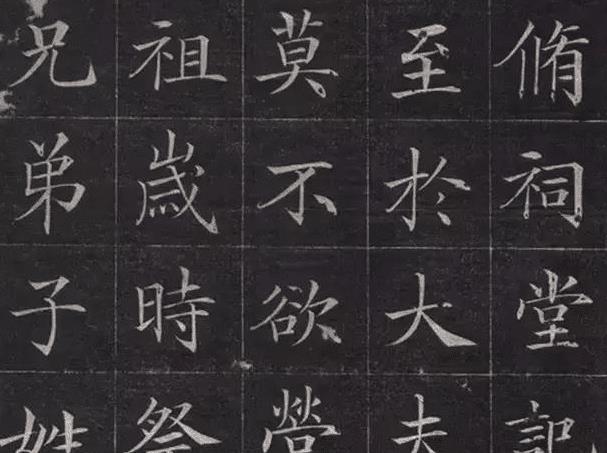 脩祠堂記
至於大夫
莫不欲營
祖歲時祭
兄弟子姓